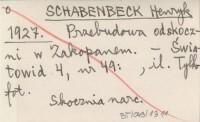 SCHABENBECK Henryk
1927. Przebudowa odskocz-
ni w Zakopanem. – Świa-
towid 4, nr 49: , il. Tylko
fot.
Skocznia narc.